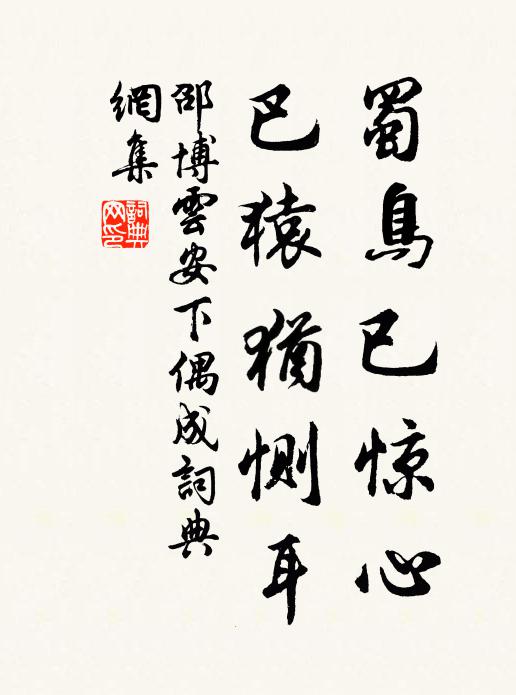 蜀鳥已惊心
巴猿猶惻耳
邵博雲安下偶成詞典
網集
詞典网印